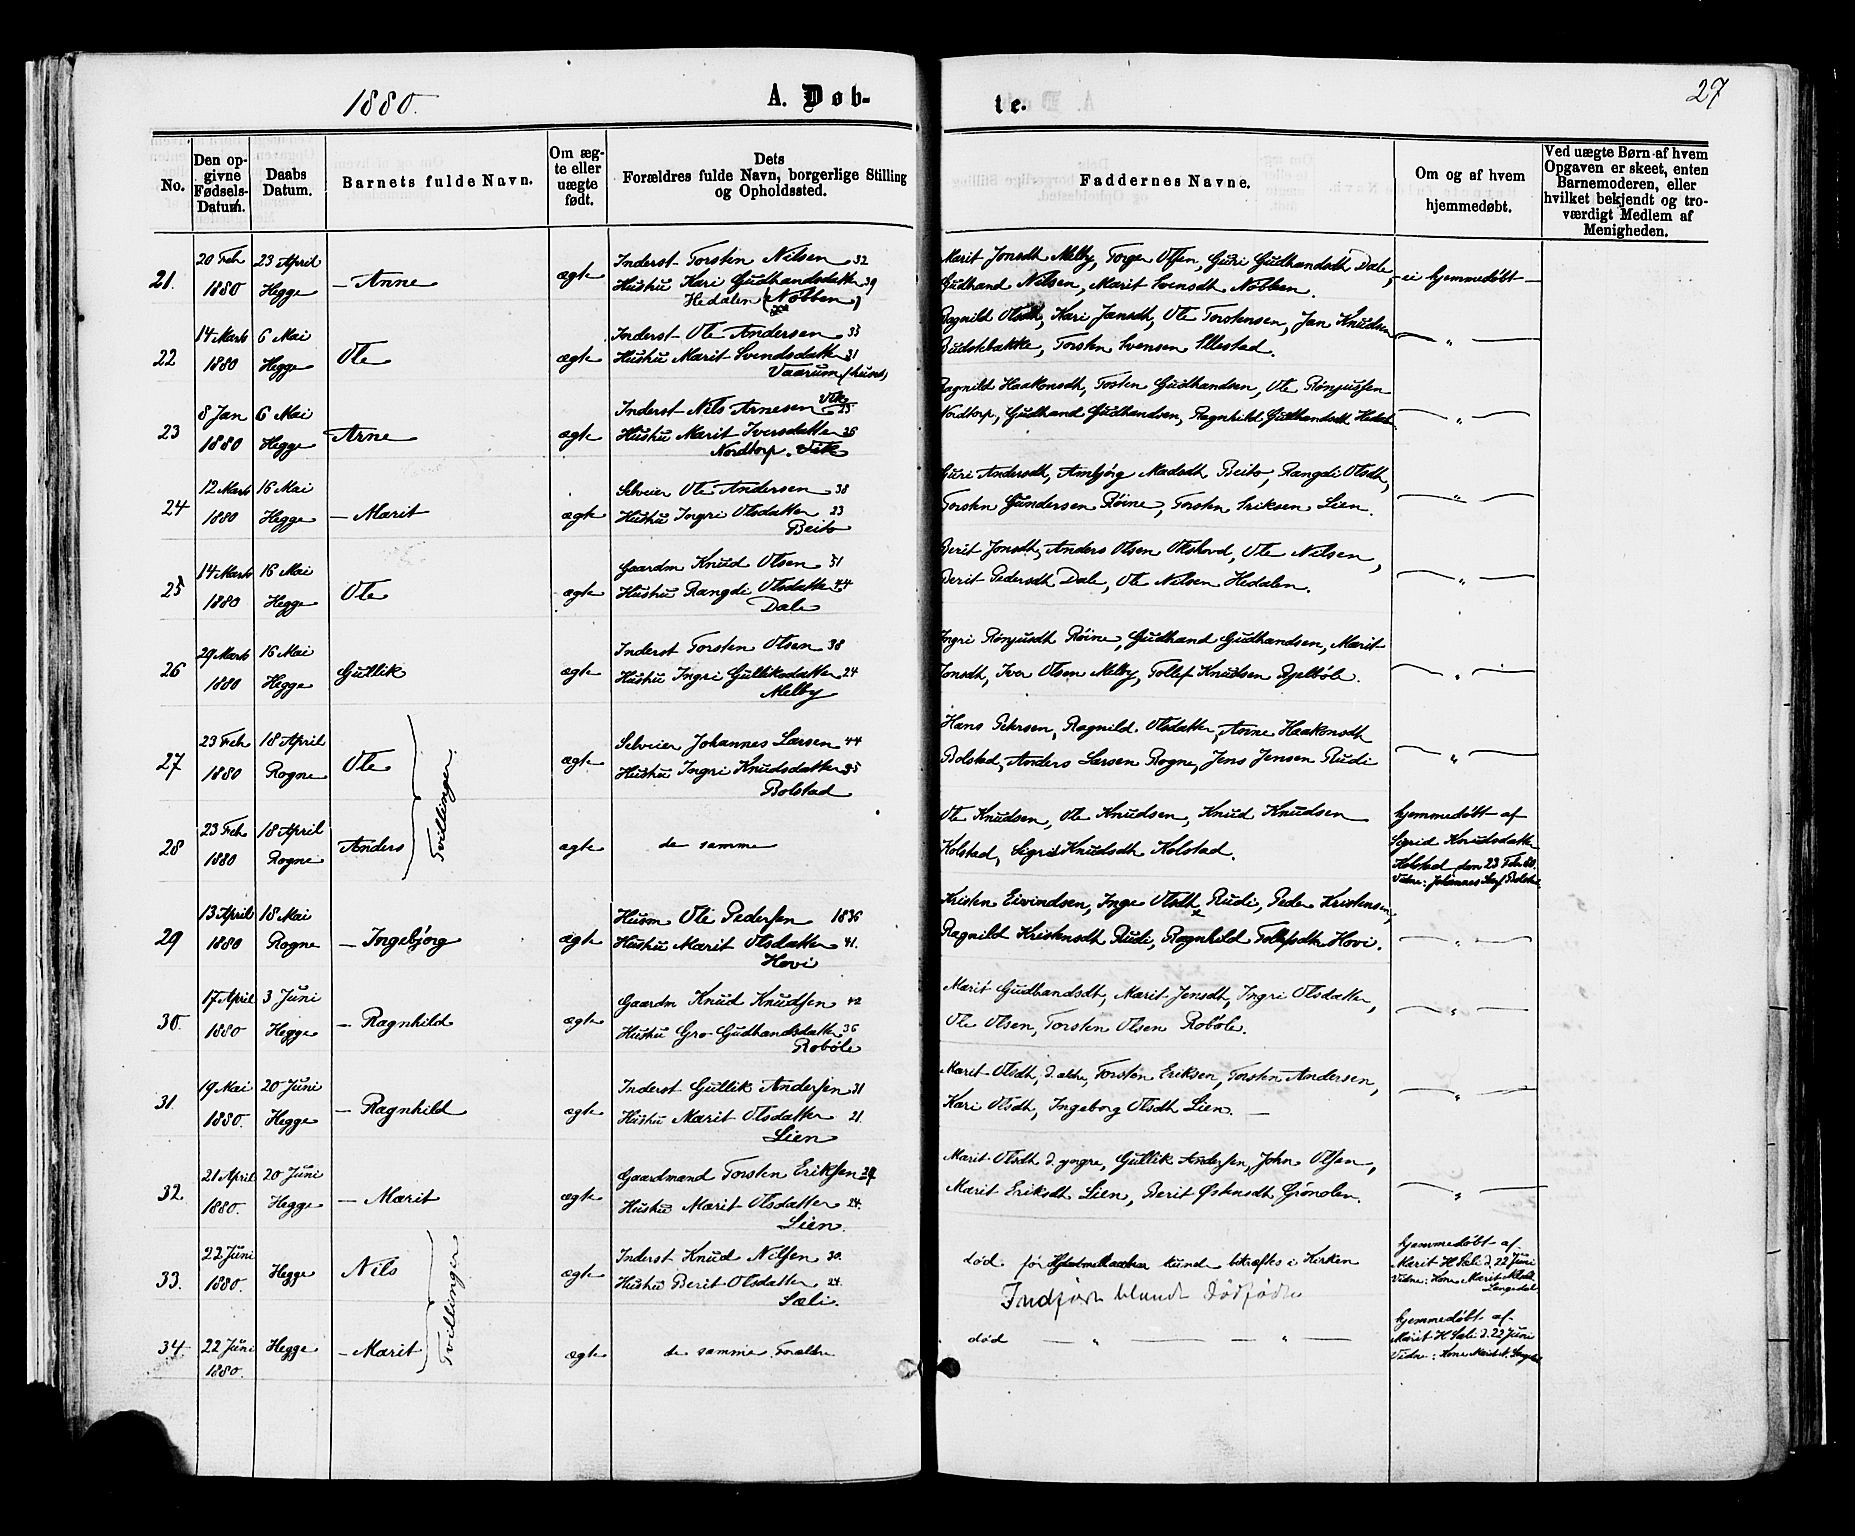 1880.
A. Døb-
te.
27
No.
Den opgivne Fødsels-Datum.
Daabs Datum.
Barnets fulde Navn.
Om ægte eller uægte født.
Dets Forældres fulde Navn, borgerlige Stilling og Opholdssted.
Faddernes Navne.
Om og af hvem hjemmedøbt.
Ved uægte Børn af hvem Opgaven er skeet, enten Barnemoderen, eller hvilket bekjendt og troværdigt Medlem af Menigheden.
21.
20 Feb 1880
23 April Hegge
– Anne
ægte
Inderst Torsten Nilsen 32
Hushu Kari Gudhandsdatter 39
Hedalen (Nobben)
Marit Jonsdt Melby, Torger Olsen, Guri Gudhandsdt Dale,
Gudhand Nilsen, Marit Svensdt Nobben.
ei hjemmedøbt –
22
14 Marts 1880
6 Mai Hegge
Ole
ægte
Inderst Ole Andersen 33
Hushu Marit Svendsdatter 31
Vaarum
Ragnild Olsdt, Kari Jansdt, Ole Torstensen, Jan Knudsen
Budstbakke, Torsten Svensen Ellestad.
— „ —
23
8 Jan 1880
6 Mai Hegge
Arne
ægte
Inderst Nils Arnesen Vik 25
Hushu Marit Iversdatter 26
Nordtorp. Vik
Ragnild Haakensdt, Torsten Gudhandsen, Ole Rønjussen
Nordtorp, Gudhand Gudhandsen, Ragnhild Gudhandsdt
— „ —
24
12 Marts 1880
16 Mai Hegge
– Marit
ægte
Selveier Ole Andersen 38
Hushu Ingri Olsdatter 23
Beito
Guri Andersdt, Ambjørg Madsdt Beito, Rangdi Olsdt,
Torsten Gundersen Røine, Torsten Eriksen Lien.
— „ —
25
14 Marts 1880
16 Mai Hegge
Ole
ægte
Gaardm Knud Olsen 51
Hushu Rangdi Olsdatter 44
Dale
Berit Jonsdt, Anders Olsen Okshovd, Ole Nilsen,
Berit Pedersdt Dale, Ole Nilsen Hedalen.
— „ —
26
29 Marts 1880
16 Mai Hegge
Gullik
ægte
Inderst Torsten Olsen 38
Hushu Ingri Gulliksdatter 24
Melby
Ingri Rønjusdt Røine, Gudhand Gudhandsen, Marit
Jonsdt, Iver Olsen Melby, Tollef Knudsen Hjelbøle.
— „ —
27
23 Feb 1880
18 April Rogne
Ole
Tvillinger
ægte
Selveier Johannes Larsen 44
Hushu Ingri Knudsdatter 35
Bolstad
Hans Petersen, Ragnild Olsdatter, Anne Haakensdt
Bolstad, Anders Larsen Rogne, Jens Jensen Rudi
— „ —
28
23 Feb 1880
18 April Rogne
Anders
ægte
de samme
Ole Knudsen, Ole Knudsen, Knud Knudsen
Kolstad, Sigrid Knudsdt Kolstad.
hjemmedøbt af
Sigrid Knudsdatter
Kolstad den 23 Feb 80
Vidne: Johannes Bolstad
29
13 April 1880
18 Mai Rogne
– Ingebjørg
ægte
Husm Ole Pedersen 1836
Hushu Marit Olsdatter 41.
Hovi
Kristen Eivindsen, Inge Olsdt Rudi, Peder Kristensen,
Ragnild Kristensdt Rudi, Ragnhild Tollefsdtr Hovi.
— „ —
30.
17 April 1880
3 Juni Hegge
– Ragnhild
ægte
Gaardm Knud Knudsen 42
Hushu Gro Gudhandsdatter 36
Robøle
Marit Gudhandsdt, Marit Jensdt, Ingri Olsdatter,
Ole Olsen, Torsten Olsen Robøle.
— „ —
31.
19 Mai 1880.
20 Juni Hegge
– Ragnhild
ægte
Inderst Gullik Andersen 31
Hushu Marit Olsdatter 21.
Lien
Marit Olsdt, d. ældre, Torsten Eriksen, Torsten Andersen,
Kari Olsdt, Ingeborg Olsdt Lien. —
— „ —
32.
21 April 1880.
20 Juni Hegge
– Marit
ægte
Gaardmand Torsten Eriksen
Hushu Marit Olsdatter 24.
Lien.
Marit Olsdt d. yngre, Gullik Andersen, John Olsen,
Marit Eriksdt Lien, Berit Østensdt Grønolen.
— „ —
33.
22 Juni 1880.
Hegge
Nils
Tvillinger
ægte
Inderst Knud Nilsen 30.
Hushu Berit Olsdatter 24.
Sæli.
død før Hjemmedaaben kunde bekræftes i Kirken
Indført blandt Dødfødte
hjemmedøbt af
Marit H Sæli d. 22 Juni
Vidne: Kone Marit
34.
22 Juni 1880.
Hegge
– Marit
ægte
de samme Forældre
død — „ — — „ —
hjemmedøbt af
Marit H Sæli d. 22 Juni
Vidne: Kone Marit